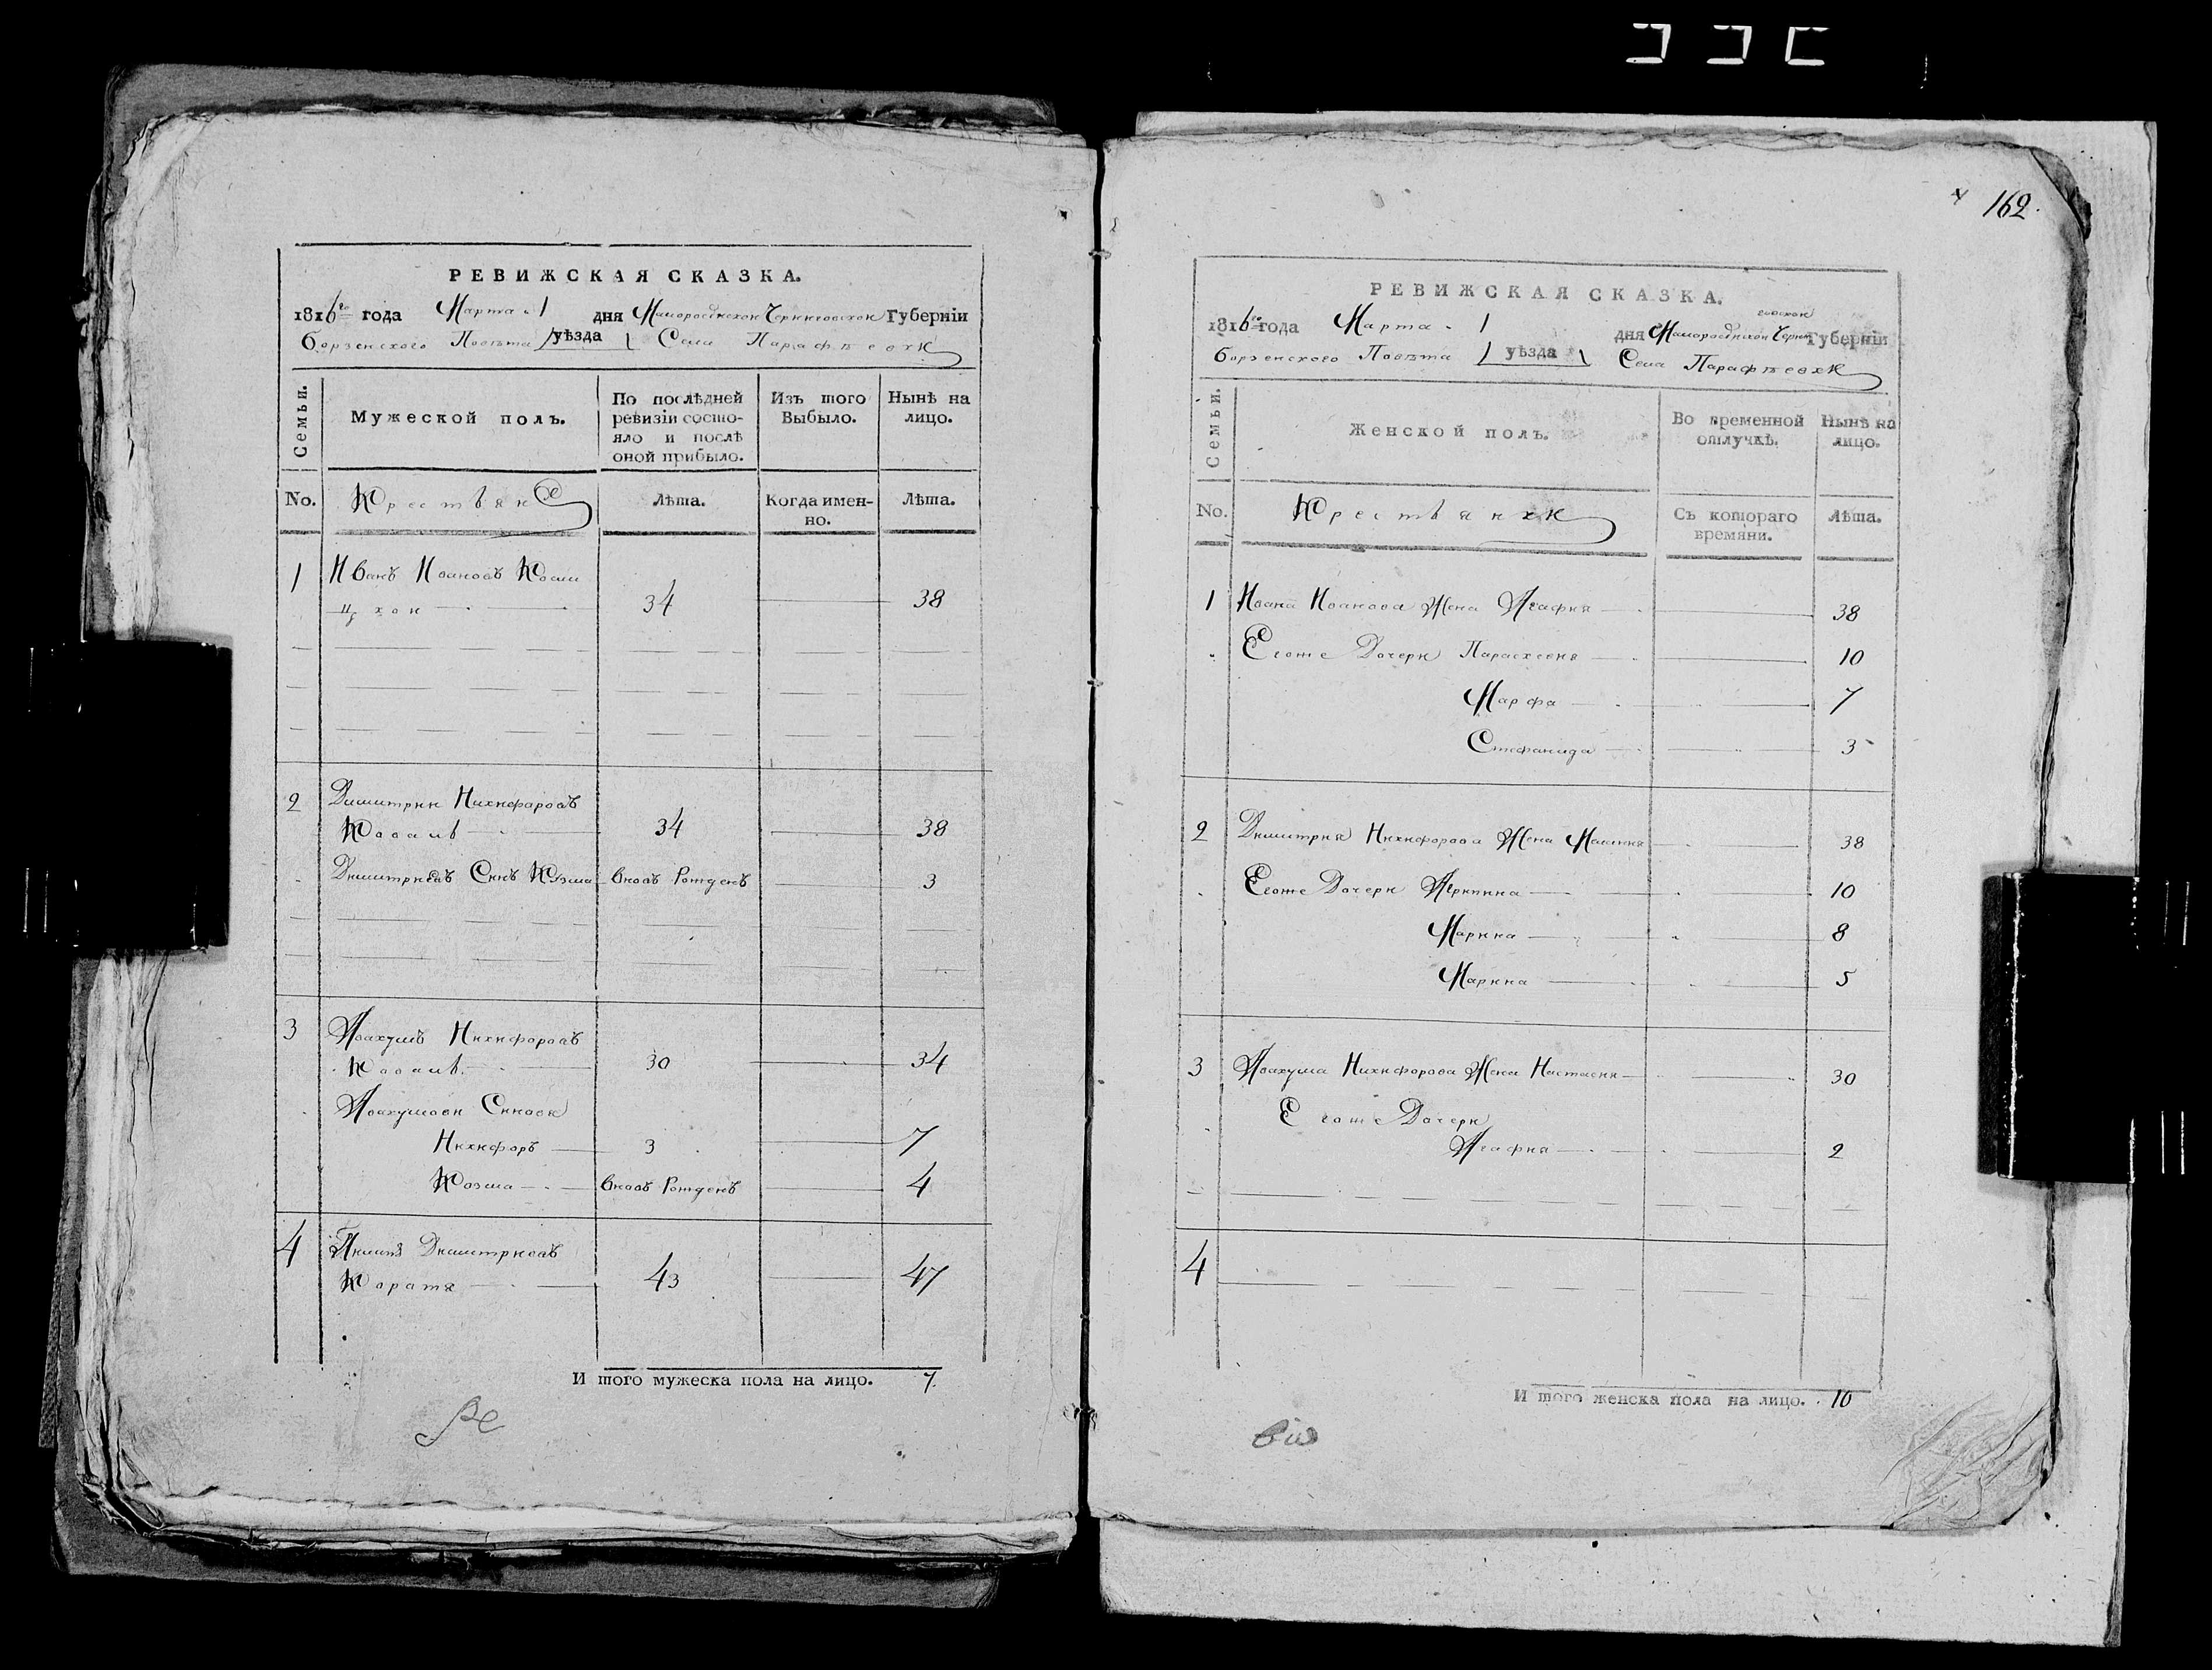 РЕВИЖСКАЯ СКАЗКА.
1816го года Марта 1 дня Малоросійской Черниговской Губерніи
Борзенского Повѣта уѣзда Села Парафѣевки
Семьи.
Мужеской полъ.
По послѣдней ревизіи состояло и послѣ оной прибыло.
Изъ того Выбыло.
Нынѣ на лицо.
No.
Крестьяне
Лѣта.
Когда именно.
Лѣта.
1 Иванъ Ивановъ
34 38
2 Димитрий Никифаровъ
Коваль 34 38
Димитриевъ Синъ Козма вновъ Рожденъ 3
3 Авакумъ Никифоровъ
Коваль 30 34
Авакумови Синови
Никифоръ 3 7
Козма вновъ Рожденъ 4
4 Димитриевъ
43 47
И того мужеска пола на лицо. 7.
162.
РЕВИЖСКАЯ СКАЗКА.
говской
1816го года Марта 1 дня Малоросійской Черни Губерніи
Борзенского Повѣта уѣзда Села Парафѣевки
Семьи.
Женской полъ.
Во временной отлучкѣ.
Нынѣ на лицо.
No.
Крестьянки
Съ котораго времяни.
Лѣта.
1 Ивана Иванова Жена Агафия 38
Егоже Дочери Парасковия 10
Марфа 7
Стефанида 3
2 Димитрия Никифорова Жена 38
Егоже Дочери Агрипина 10
Марина 8
Марина 5
3 Авакума Никифорова Жена Настасия 30
Егоже Дочери
Агафия 2
4
И того женска пола на лицо. 10